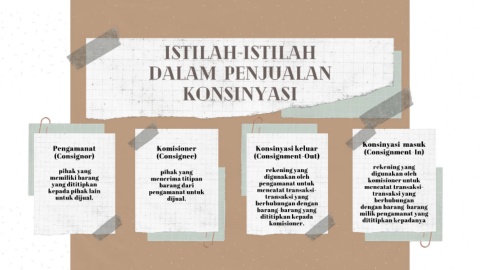 ISTILAH-ISTILAH
DALAM PENJUALAN
KONSINYASI
Pengamanat
(Consignor)
pihak yang
memiliki barang
yang dititipkan
kepada pihak lain
untuk dijual.
Komisioner
(Consignee)
pihak yang
menerima titipan
barang dari
pengamanat untuk
dijual.
Konsinyasi keluar
(Consignment-Out)
rekening yang
digunakan oleh
pengamanat untuk
mencatat transaksi-
transaksi yang
berhubungan dengan
barang-barang yang
dititipkan kepada
komisioner.
Konsinyasi masuk
(Consignment-In)
rekening yang
digunakan oleh
komisioner untuk
mencatat transaksi-
transaksi yang
berhubungan
dengan barang-barang
milik pengamanat yang
dititipkan kepadanya